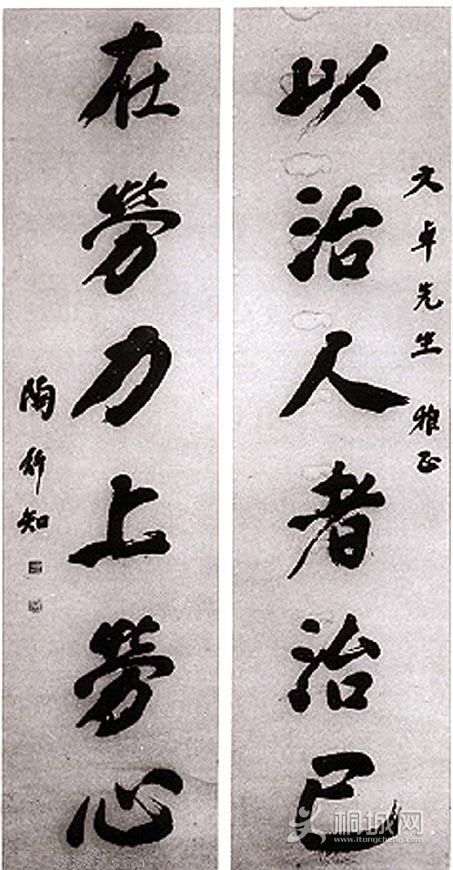 文卓先生 雅正
以治人者治己
在勞力上勞心
陶行知
桐城网
www.itongcheng.com